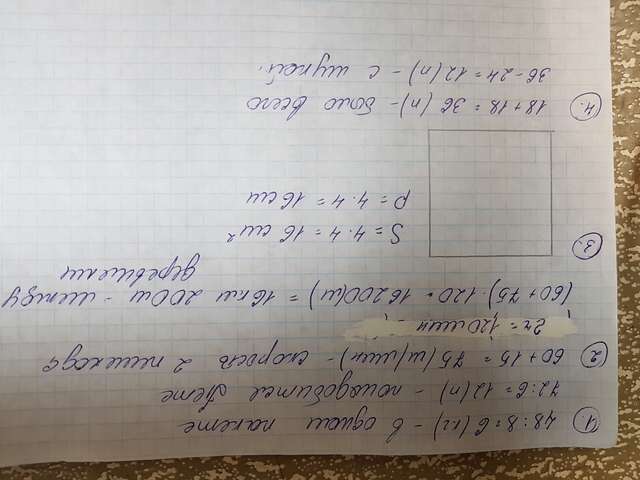 1. 48:8=6 (кг) - в одном пакете
72:6=12(п) - понадобится Пете
2 60+15= 75(м/мин) - скорость 2 пешехода
2ч=120мин
(60+75)·120= 16200(м) = 16км 200м - между
деревнями
3. S=4·4=16 см²
P=4·4=16см
4. 18+18=36 (п)- было всего
36-24=12(п) - с мукой.